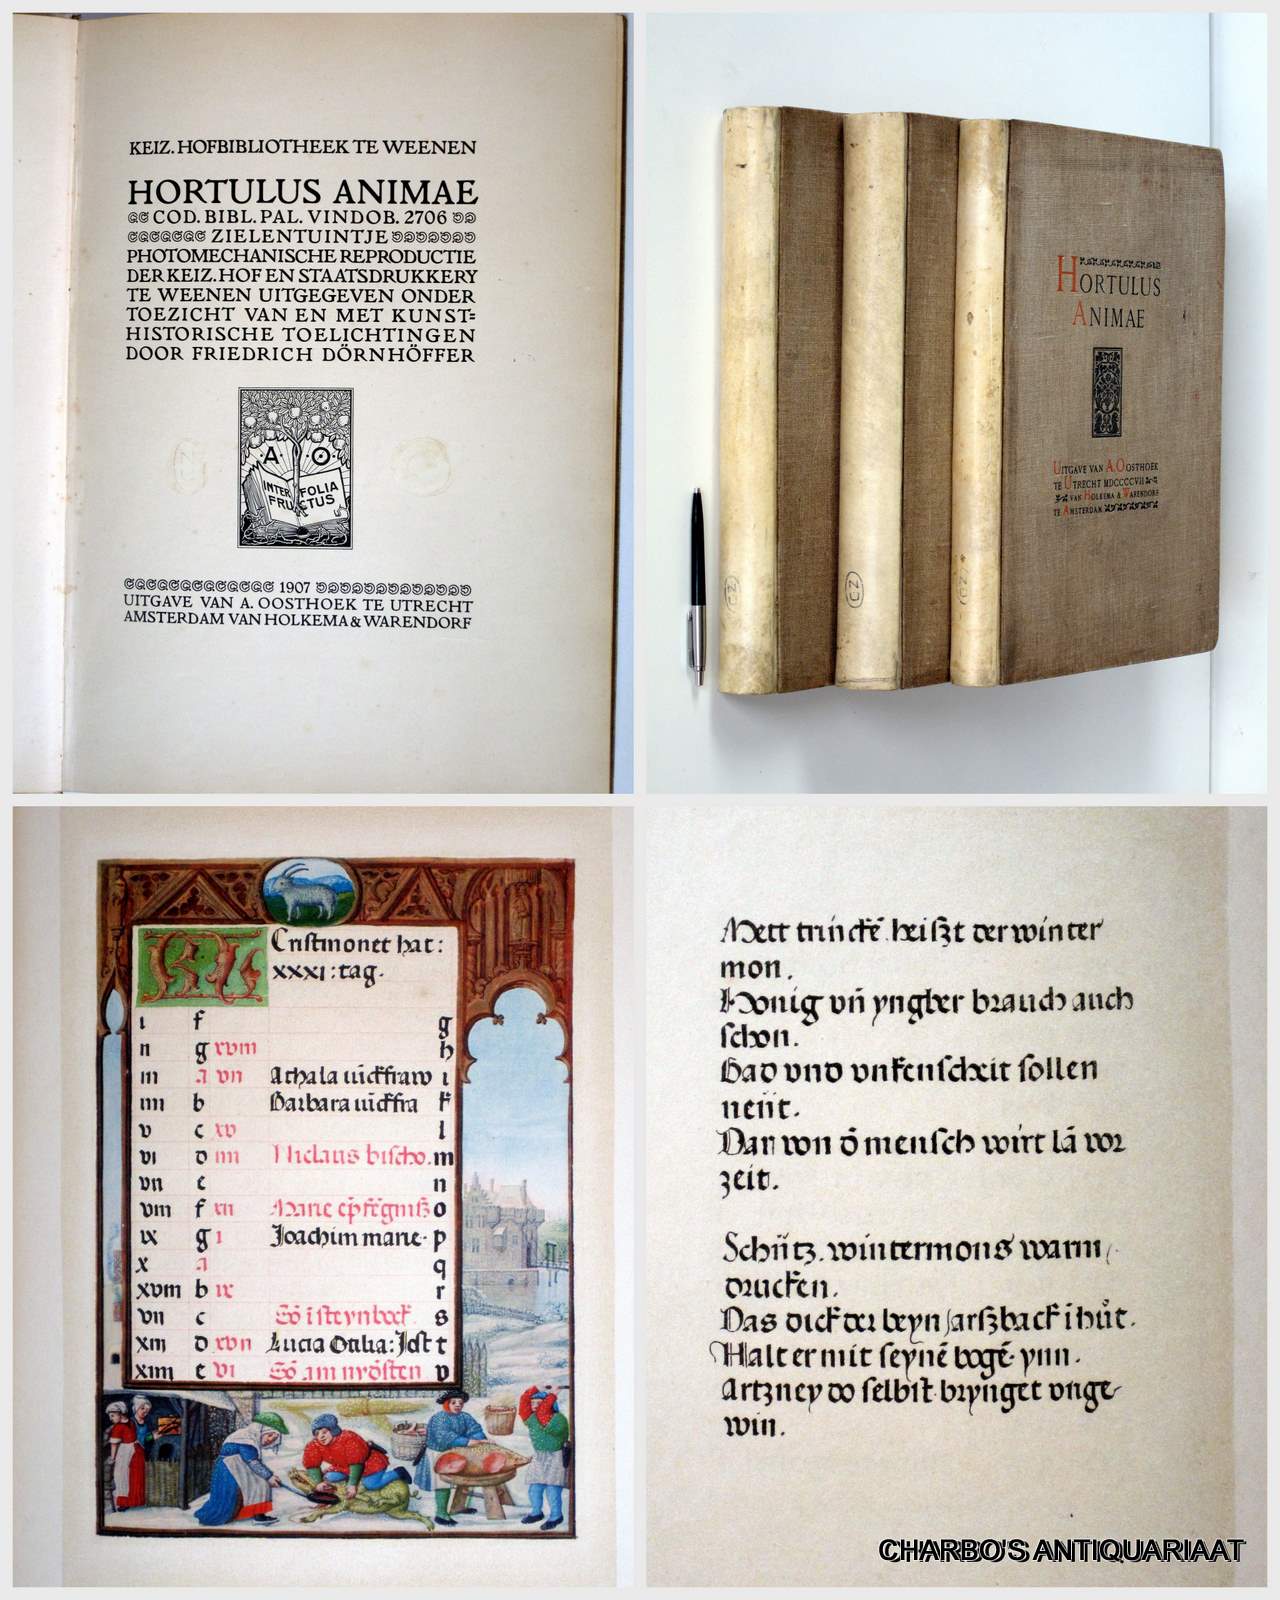 KEIZ. HOFBIBLIOTHEEK TE WEENEN
HORTULUS ANIMAE
COD. BIBL. PAL. VINDOB. 2706
ZIELENTUINTJE
PHOTOMECHANISCHE REPRODUCTIE
DER KEIZ. HOF EN STAATSDRUKKERY
TE WEENEN UITGEGEVEN ONDER
TOEZICHT VAN EN MET KUNST=
HISTORISCHE TOELICHTINGEN
DOOR FRIEDRICH DÖRNHÖFFER
A · O
INTER FOLIA
FRUCTUS
1907
UITGAVE VAN A. OOSTHOEK TE UTRECHT
AMSTERDAM VAN HOLKEMA & WARENDORF
HORTULUS
ANIMAE
UITGAVE VAN A. OOSTHOEK
TE UTRECHT MDCCCCVII
VAN HOLKEMA & WARENDORF
TE AMSTERDAM
Cristmonet hat:
xxxi: tag.
i f g
ii g xviii h
iii a vii i
iiii b Barbara k
v c xv l
vi d iiii Niclaus bischo. m
vii e n
viii f xii Marie o
ix g i Joachim marie. p
x a q
xviii b ix r
vii c Sō ī steynbock. s
xiii d xvii Lucia Otilia: Jost t
xiiii e vi Sō am v
Mett trincke. heiszt der winter
mon.
Honig vn yngber brauch auch
schon.
Bad vnd vnkenscheit sollen
Dar von d mensch wirt la vor
zeit.
Schütz. wintermons warm
drucken.
Das dick der beyn arszback i hut.
Halt er mit seyne boge. ynn.
Artzney do selbst. brynget vnge-
win.
CHARBO'S ANTIQUARIAAT